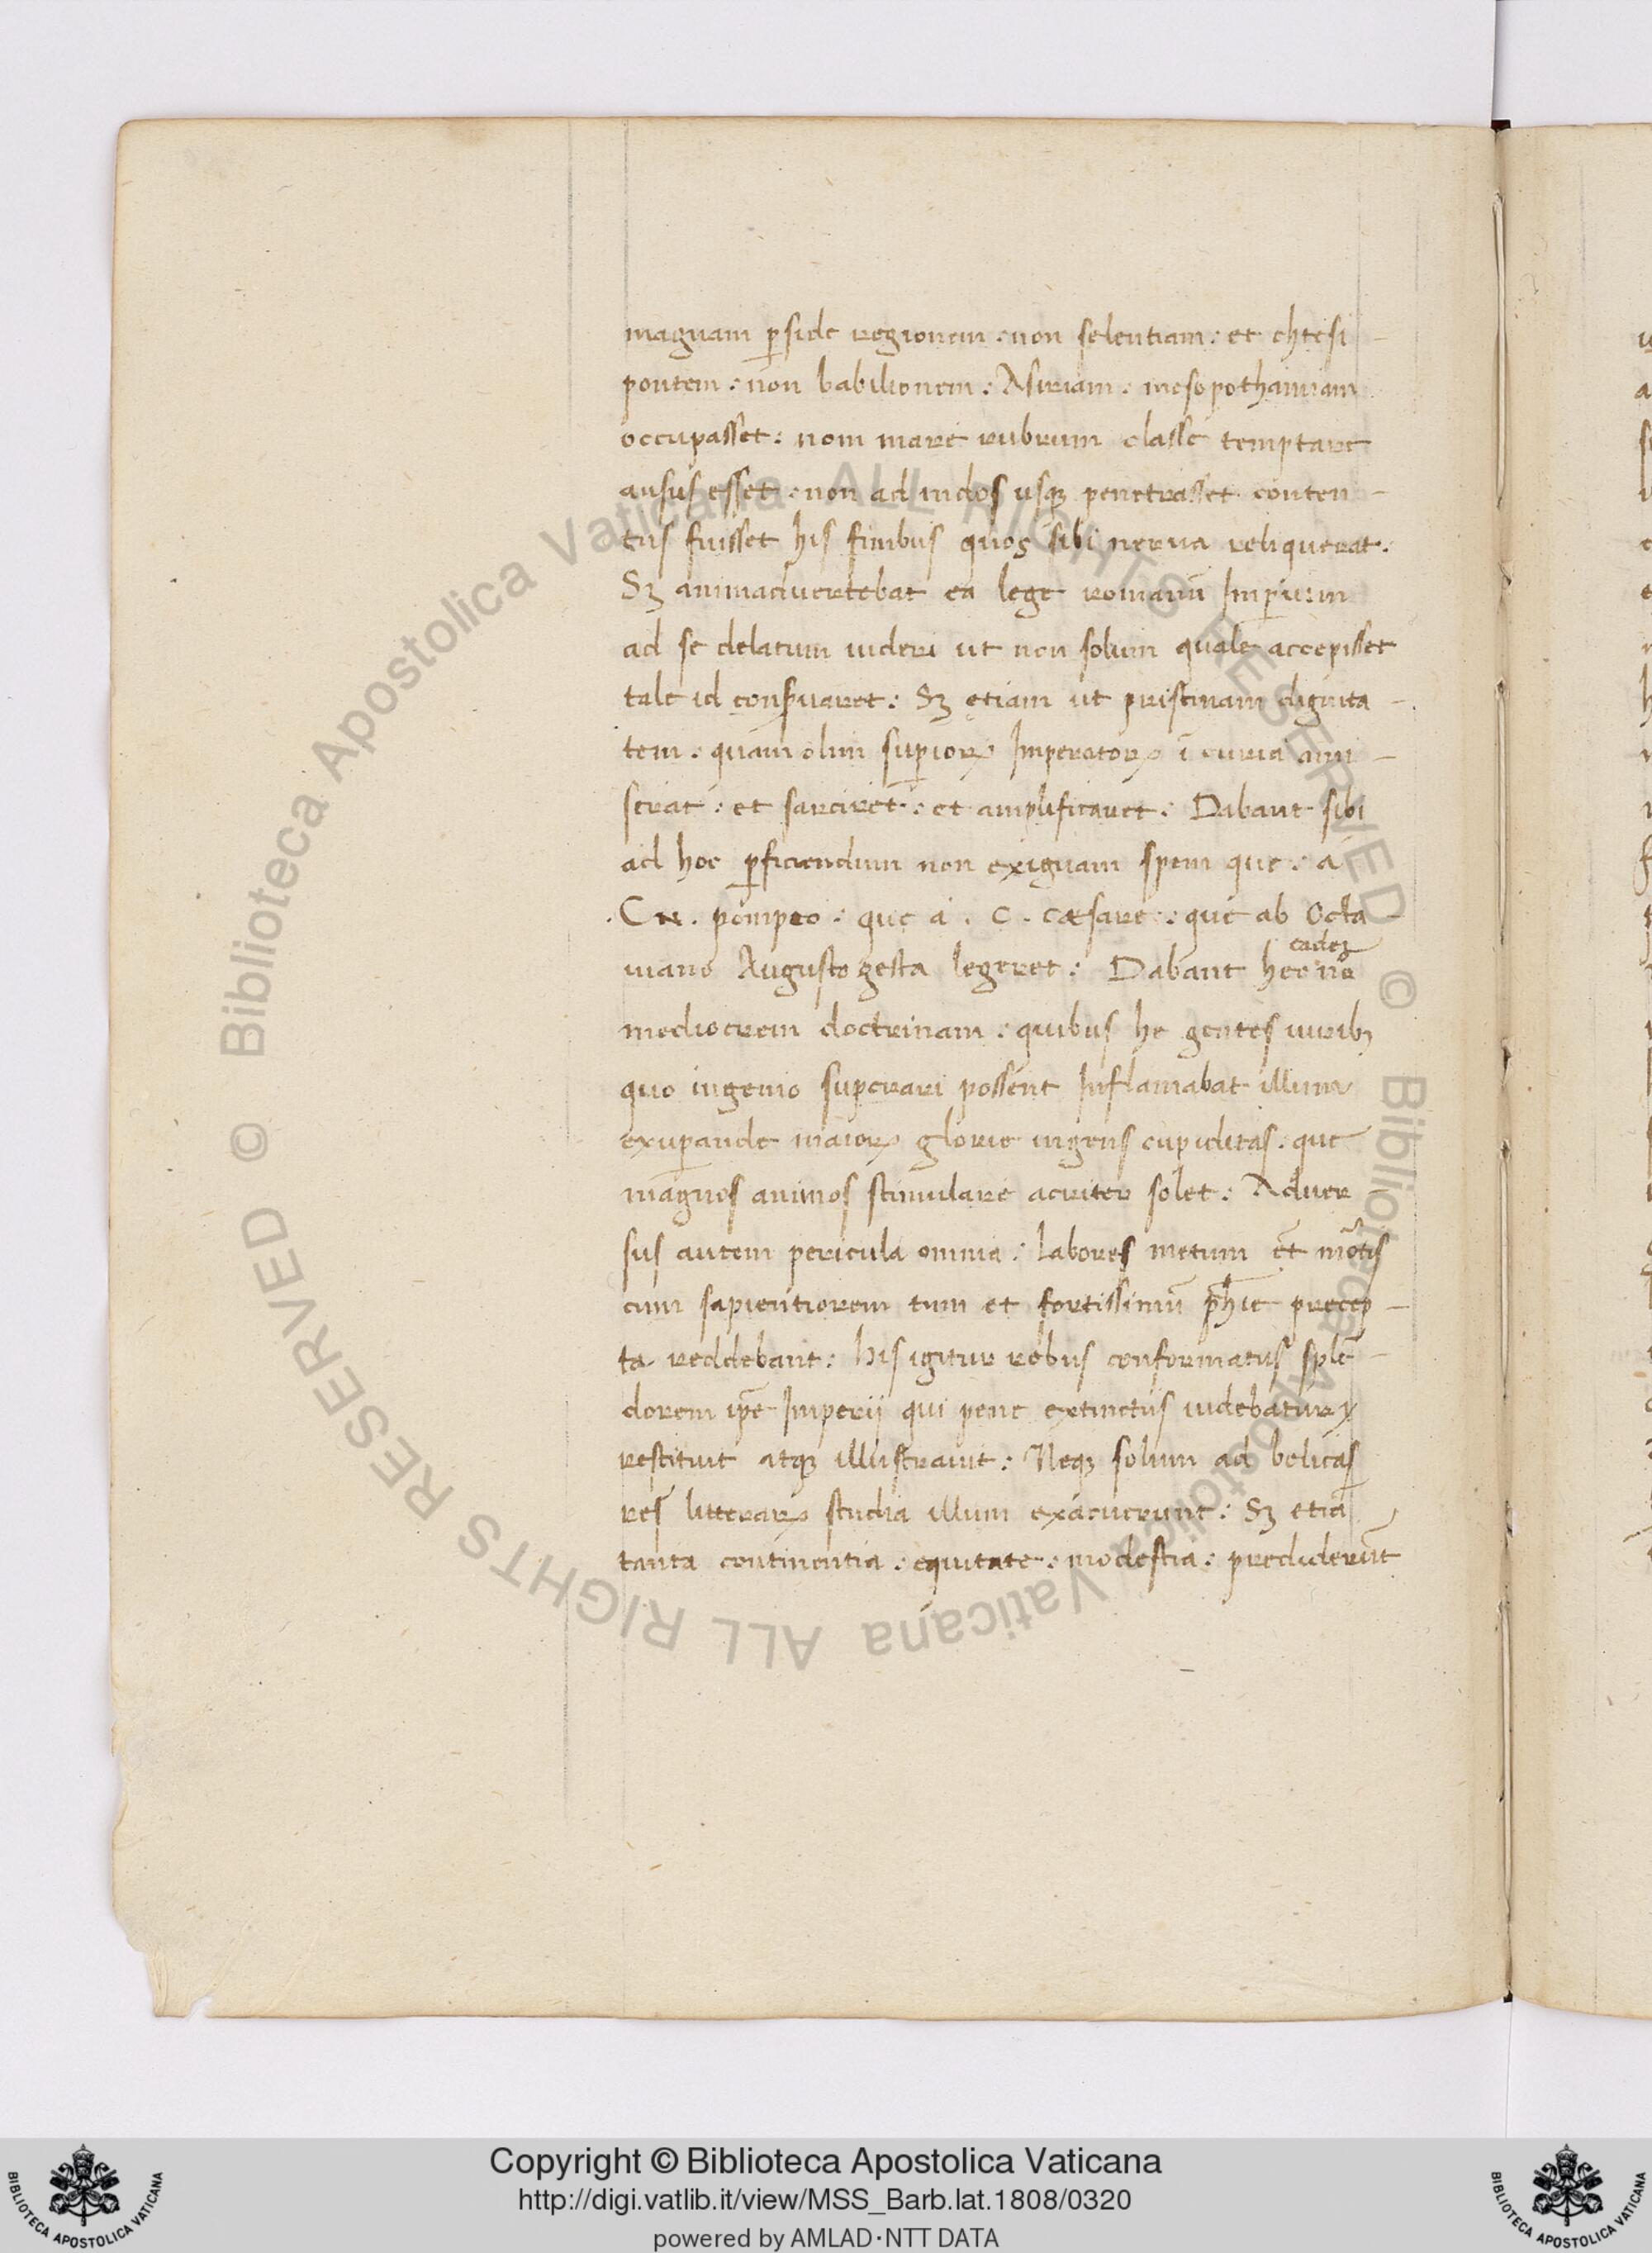 magnam ꝑside regionem : non selentiam : et chtesi -
pontem : non babilionem : Asiriam : mesopothamiam
occupasset : nom mare rubrum classe temptare
ausus esset : non ad indos usqꝫ penetrasset conten -
tus fuisset his finibus quos sibi nerua reliquerat .
Sꝫ animaduertebat ea lege romanū Imꝑium
ad se delatum uideri ut non solum quale accepisset
tale id conſuaret : Sꝫ etiam ut pristinam dignita -
tem . quam olim suꝑioꝝ Imperatoꝝ ī curia ami -
serat : et sarciret : et amplificaret : Dabant sibi
ad hoc ꝑficiendum non exiguam spem que : a
. CN . pompeo : que a . C . cæsare : que ab Octa -
uiano Augusto gesta legeret : Dabant hec eadeꝫ nō
mediocrem doctrinam : quibus he gentes uiribꝫ
quo ingenio superari possent Inflamabat illum
exuꝑande maioꝝ glorie ingens cupiditas . que
magnos animos stimulare acriter solet : Aduer
sus autem pericula omnia : labores metum et mōtis
cum sapientiorem tum et fortissimū ph̄ie precep -
ta reddebant : his igitur rebus conformatus splē -
dorem ip̄e Imperij qui pene extinctus uidebatur
restituit atqꝫ illustrauit : Neqꝫ solum ad belicas
res litteraꝝ studia illum exacuerunt : Sꝫ etiā
tanta continentia : equitate : modestia : prediderūt
© Biblioteca Apostolica Vaticana ALL RIGHTS RESERVED
© Biblioteca Apostolica Vaticana ALL RIGHTS RESERVED
Copyright © Biblioteca Apostolica Vaticana
http://digi.vatlib.it/view/MSS_Barb.lat.1808/0320
powered by AMLAD·NTT DATA
BIBLIOTECA APOSTOLICA VATICANA
BIBLIOTECA APOSTOLICA VATICANA